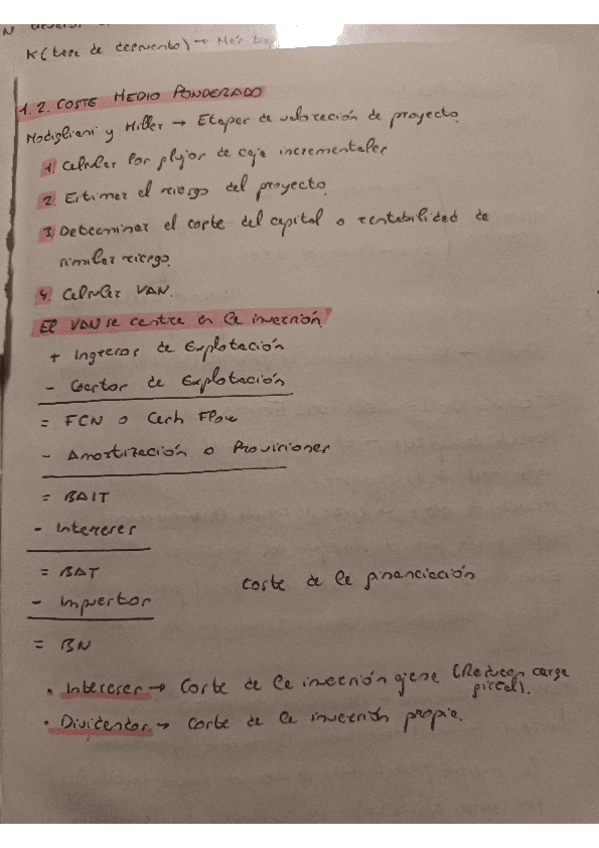 K (tasa de descuento) →
1.2. COSTE MEDIO PONDERADO
Modigliani y Miller → Etapas de valoración de proyecto
1. Calcular los flujos de caja incrementales
2. Estimar el riesgo del proyecto
3. Determinar el coste del capital o rentabilidad de
similar riesgo.
4. Calcular VAN.
El VAN se centra en la inversión
+ Ingresos de Explotación
- Gastos de Explotación
= FCN o Cash Flow
- Amortización o Provisiones
= BAIT
- Intereses
= BAT
coste de la financiación
- Impuestos
= BN
• Intereses → Coste de la inversión ajena (Reducen carga
fiscal).
• Dividendos → coste de la inversión propia.